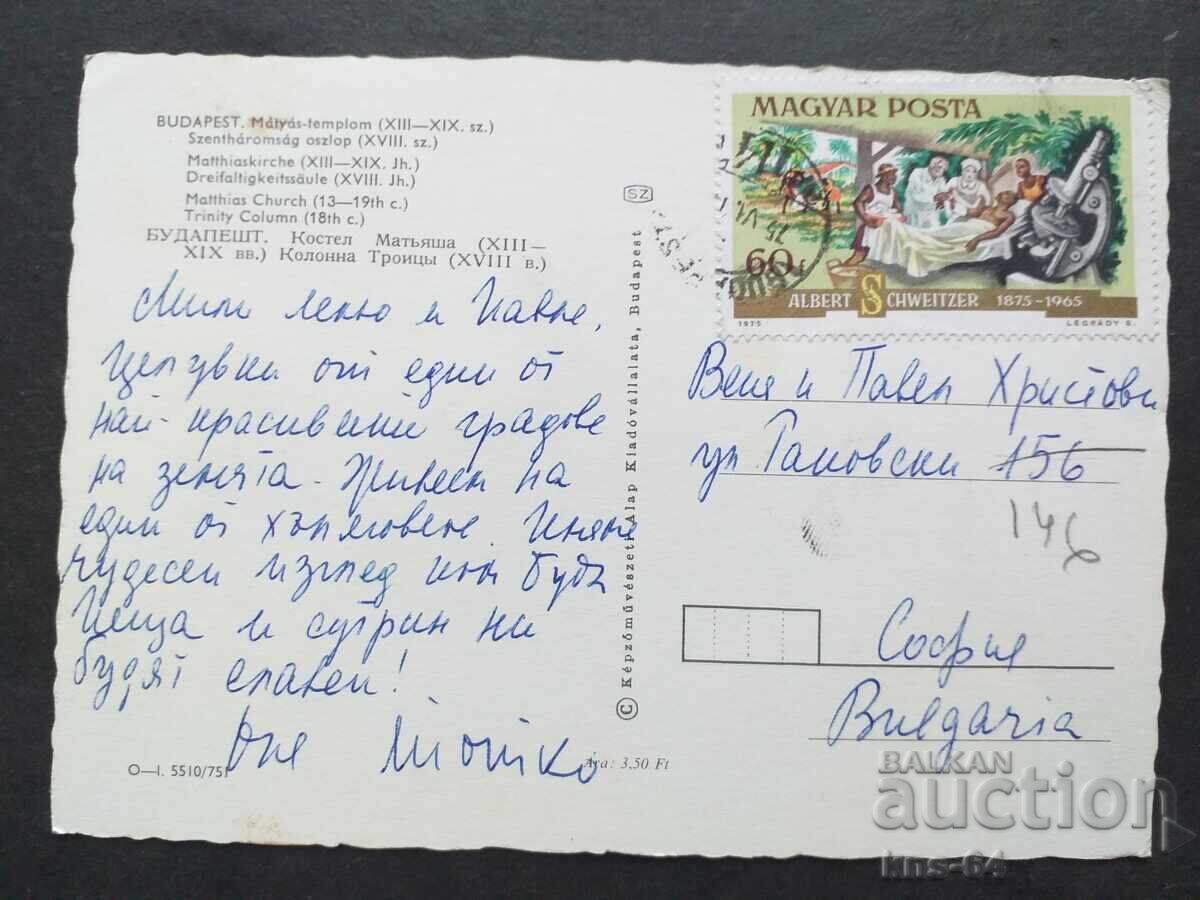 BUDAPEST. Mátyás-templom (XIII—XIX. sz.)
Szentháromság oszlop (XVIII. sz.)
Matthiaskirche (XIII—XIX. Jh.)
Dreifaltigkeitssäule (XVIII. Jh.)
Matthias Church (13—19th c.)
Trinity Column (18th c.)
БУДАПЕШТ. Костел Матьяша (XIII—
XIX вв.) Колонна Троицы (XVIII в.)
Мили и
целувки от един от
най-красивите градове
на земята. Живеем на
един от хълмовете. Имаме
чудесен изглед към Буда
и Пеща и сутрин ни
будят славеи!
O—I. 5510/751
Ára: 3,50 Ft
SZ
© Képzőművészeti Alap Kiadóvállalata, Budapest
MAGYAR POSTA
60f
ALBERT SCHWEITZER 1875-1965
1975
LÉGRÁDY S.
Веня и Павел Христови
ул. Раковски 156
146
София
Bulgaria
BALKAN
auction
kns-64